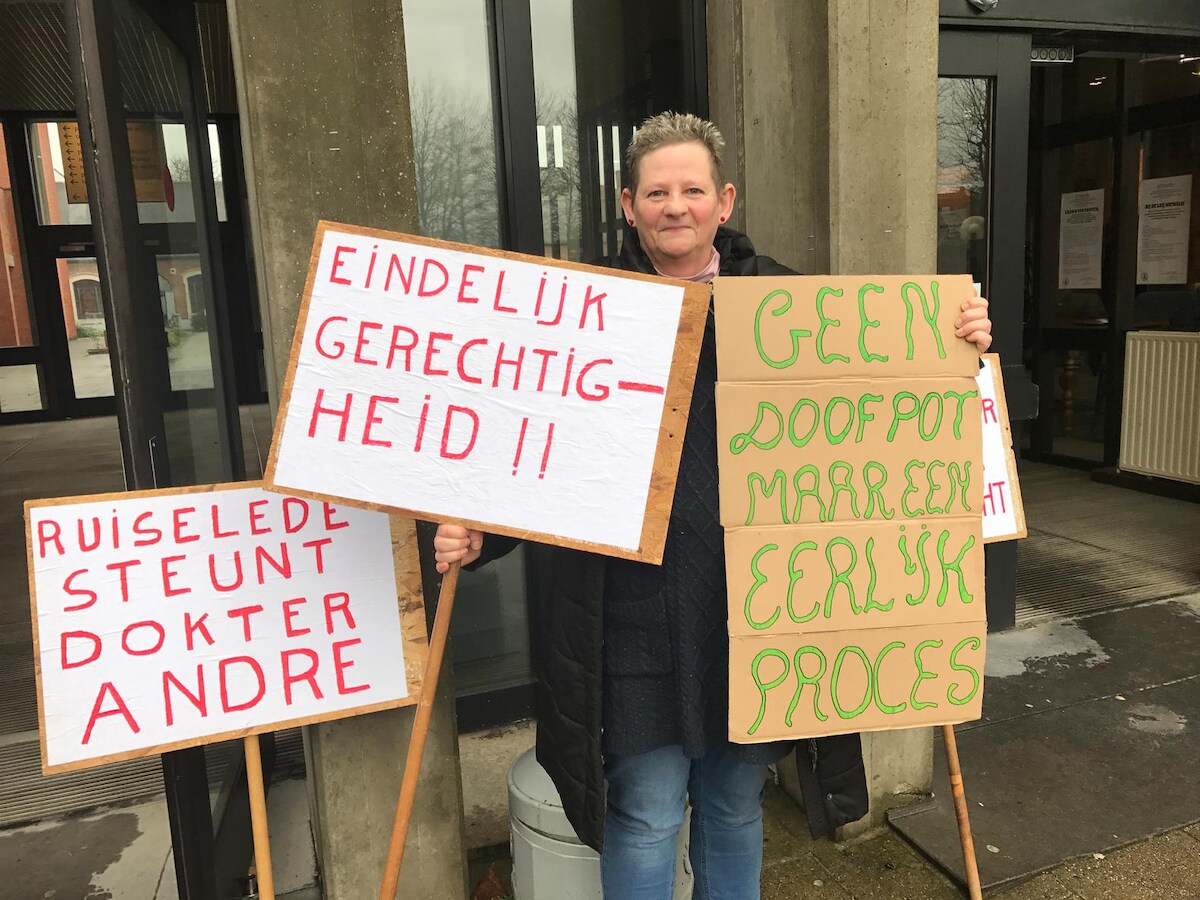 EINDELIJK
GERECHTIG-
HEID !!
RUISELEDE
STEUNT
DOKTER
ANDRE
GEEN
DOOFPOT
MAAR EEN
EERLIJK
PROCES